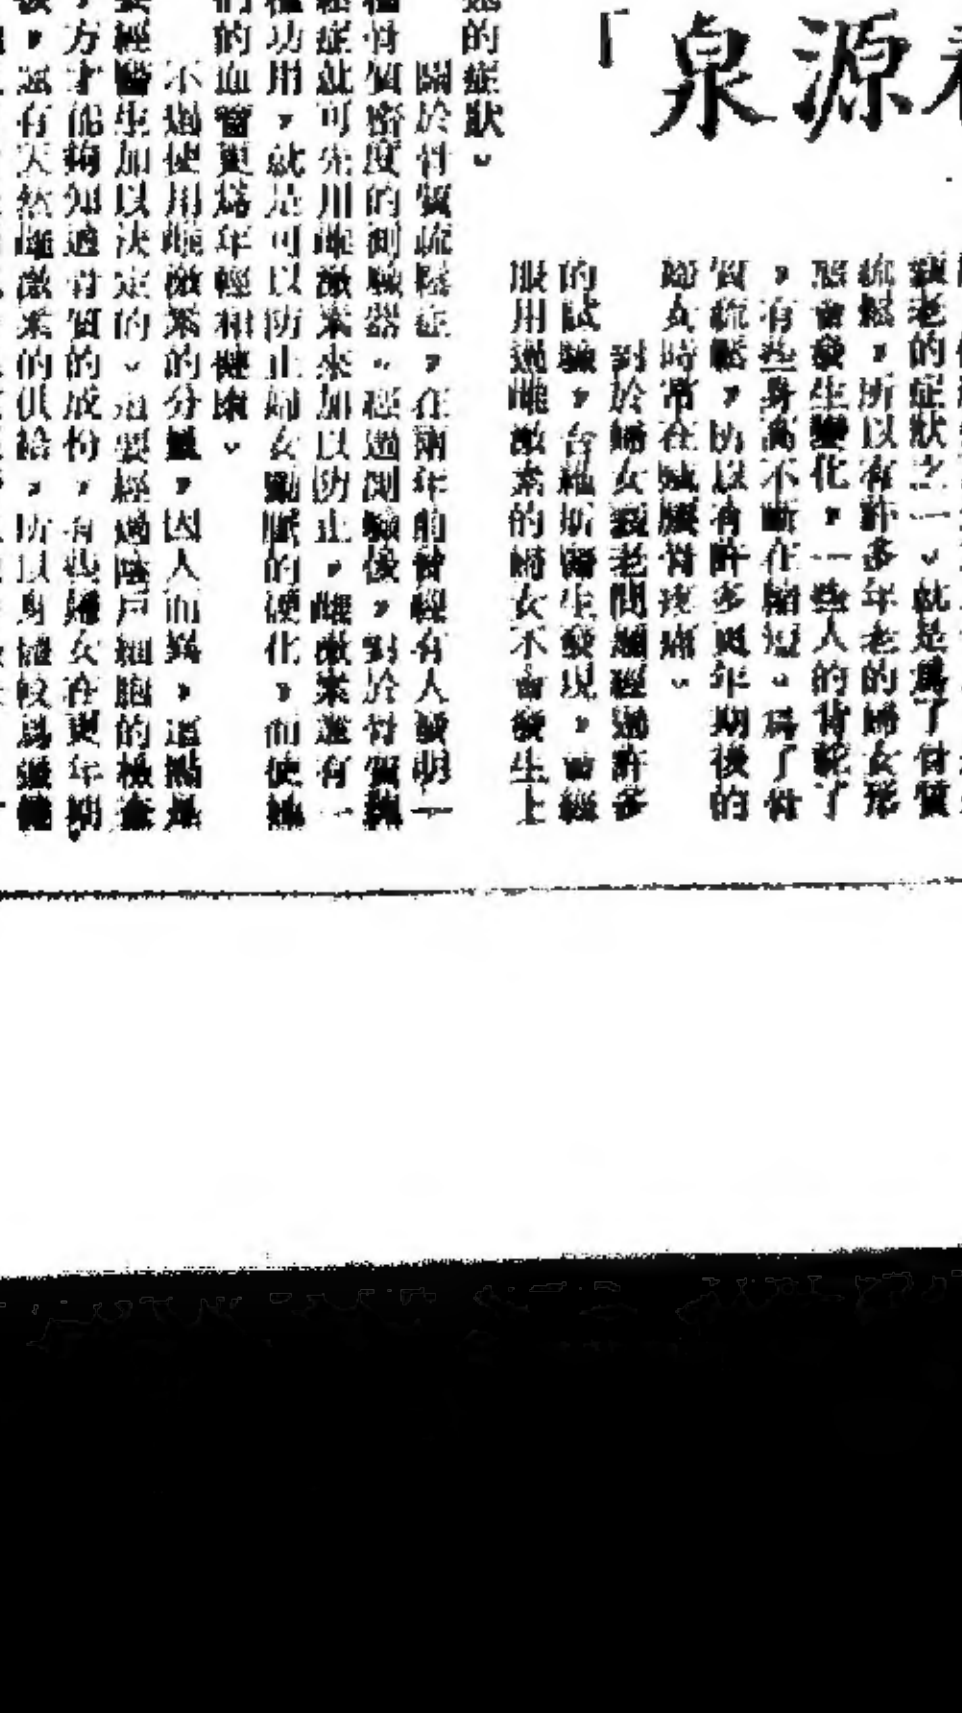 源泉「
衰老的症狀之一。就是爲了骨質
疏鬆,所以有許多年老的婦女形
態會發生變化,一些人的背駝了
,有些身高不斷在縮短。爲了骨
質疏鬆,所以有許多更年期後的
婦女時常在腰骨疼痛。
對於婦女衰老問題經過許多
的試驗,台維斯醫生發現,曾經
服用過雌激素的婦女不會發生上
的症狀。
關於骨質疏鬆症,在兩年前曾經有人發明一
骨質密度的測驗器。經過測驗後,對於骨質
症就可先用雌激素來加以防止,雌激素還有一
功用,就是可以防止婦女動脈的硬化,而使她
的血管更爲年輕和健康。
不過使用雌激素的分量,因人而異,這點是
經醫生加以決定的。這要經過陰戶細胞的檢查
,方才能夠知道骨質的成份,有些婦女在更年期
,還有天然雌激素的供給,所以身體較爲